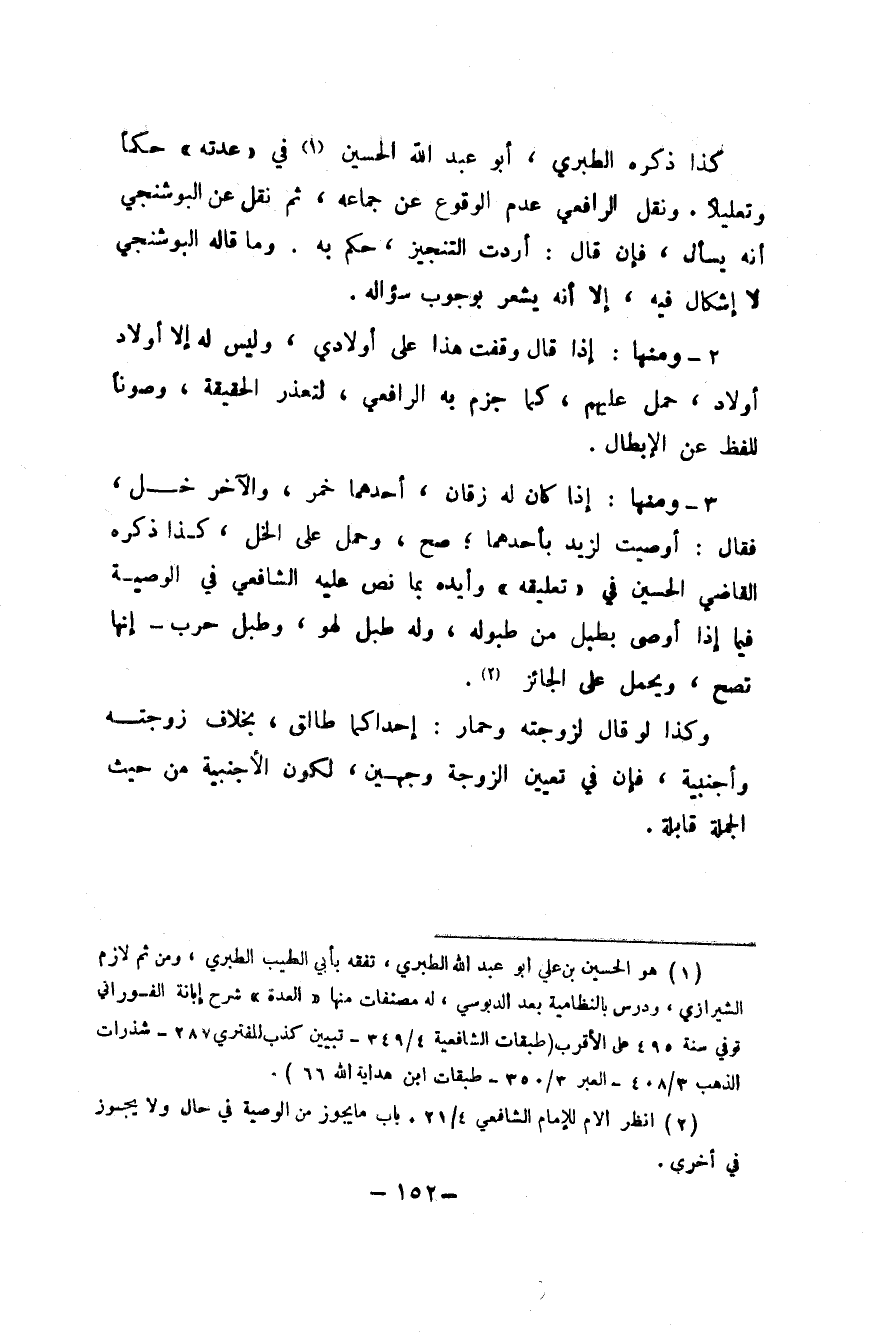 كذا ذكره الطبري ، أبو عبد الله الحسين (١) في « عدته » حكماً
وتعليلاً . ونقل الرافعي عدم الوقوع عن جماعه ، ثم نقل عن البوشنجي
أنه يسأل ، فإن قال : أردت التنجيز ، حكم به . وما قاله البوشنجي
لا إشكال فيه ، إلا أنه يشعر بوجوب سؤاله .
٢ – ومنها : إذا قال وقفت هذا على أولادي ، وليس له إلا أولاد
أولاد ، حمل عليهم ، كما جزم به الرافعي ، لتعذر الحقيقة ، وصوناً
للفظ عن الإبطال .
٣ – ومنها : إذا كان له زقان ، أحدهما خمر ، والآخر خــل ،
فقال : أوصيت لزيد بأحدهما ؛ صح ، وحمل على الخل ، كـذا ذكره
القاضي الحسين في « تعليقه » وأيده بما نص عليه الشافعي في الوصيـة
فيما إذا أوصى بطبل من طبوله ، وله طبل لهو ، وطبل حرب – إنها
تصح ، ويحمل على الجائز (٢) .
وكذا لو قال لزوجته وحمار : إحداكما طالق ، بخلاف زوجتــه
وأجنبية ، فإن في تعيين الزوجة وجهـين ، لكون الأجنبية من حيث
الجملة قابلة .
(١) هو الحسين بن علي ابو عبد الله الطبري ، تفقه بأبي الطيب الطبري ، ومن ثم لازم
الشيرازي ، ودرس بالنظامية بعد الدبوسي ، له مصنفات منها « العدة » شرح إبانة الفـوراني
توفي سنة ٤٩٥ على الأقرب (طبقات الشافعية ٣٤٩/٤ – تبيين كذب المفتري ٢٨٧ – شذرات
الذهب ٤٠٨/٣ – العبر ٣٥٠/٣ – طبقات ابن هداية الله ٦٦ ) .
(٢) انظر الام للإمام الشافعي ٢١/٤ . باب مايجوز من الوصية في حال ولا يجـوز
في أخرى .
– ١٥٢ –